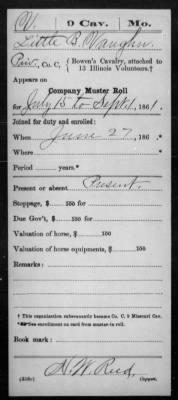 V. | 9 Cav. | Mo.
Little B. Vaughn.
Priv., Co. C, { Bowen's Cavalry, attached to
13 Illinois Volunteers.†
Appears on
Company Muster Roll
for July 15 to Sept 1, 1861.
Joined for duty and enrolled:
When June 27, 186 .*
Where
Period years.*
Present or absent Present.
Stoppage, $ 100 for
Due Gov't, $ 100
Valuation of horse, $ 100
Valuation of horse equipments, $ 100
Remarks:
† This organization subsequently became Co. C, 9 Missouri Cav.
*See enrollment on card from muster-in roll.
Book mark:
H. W. Reed,
(358c) Copyist.